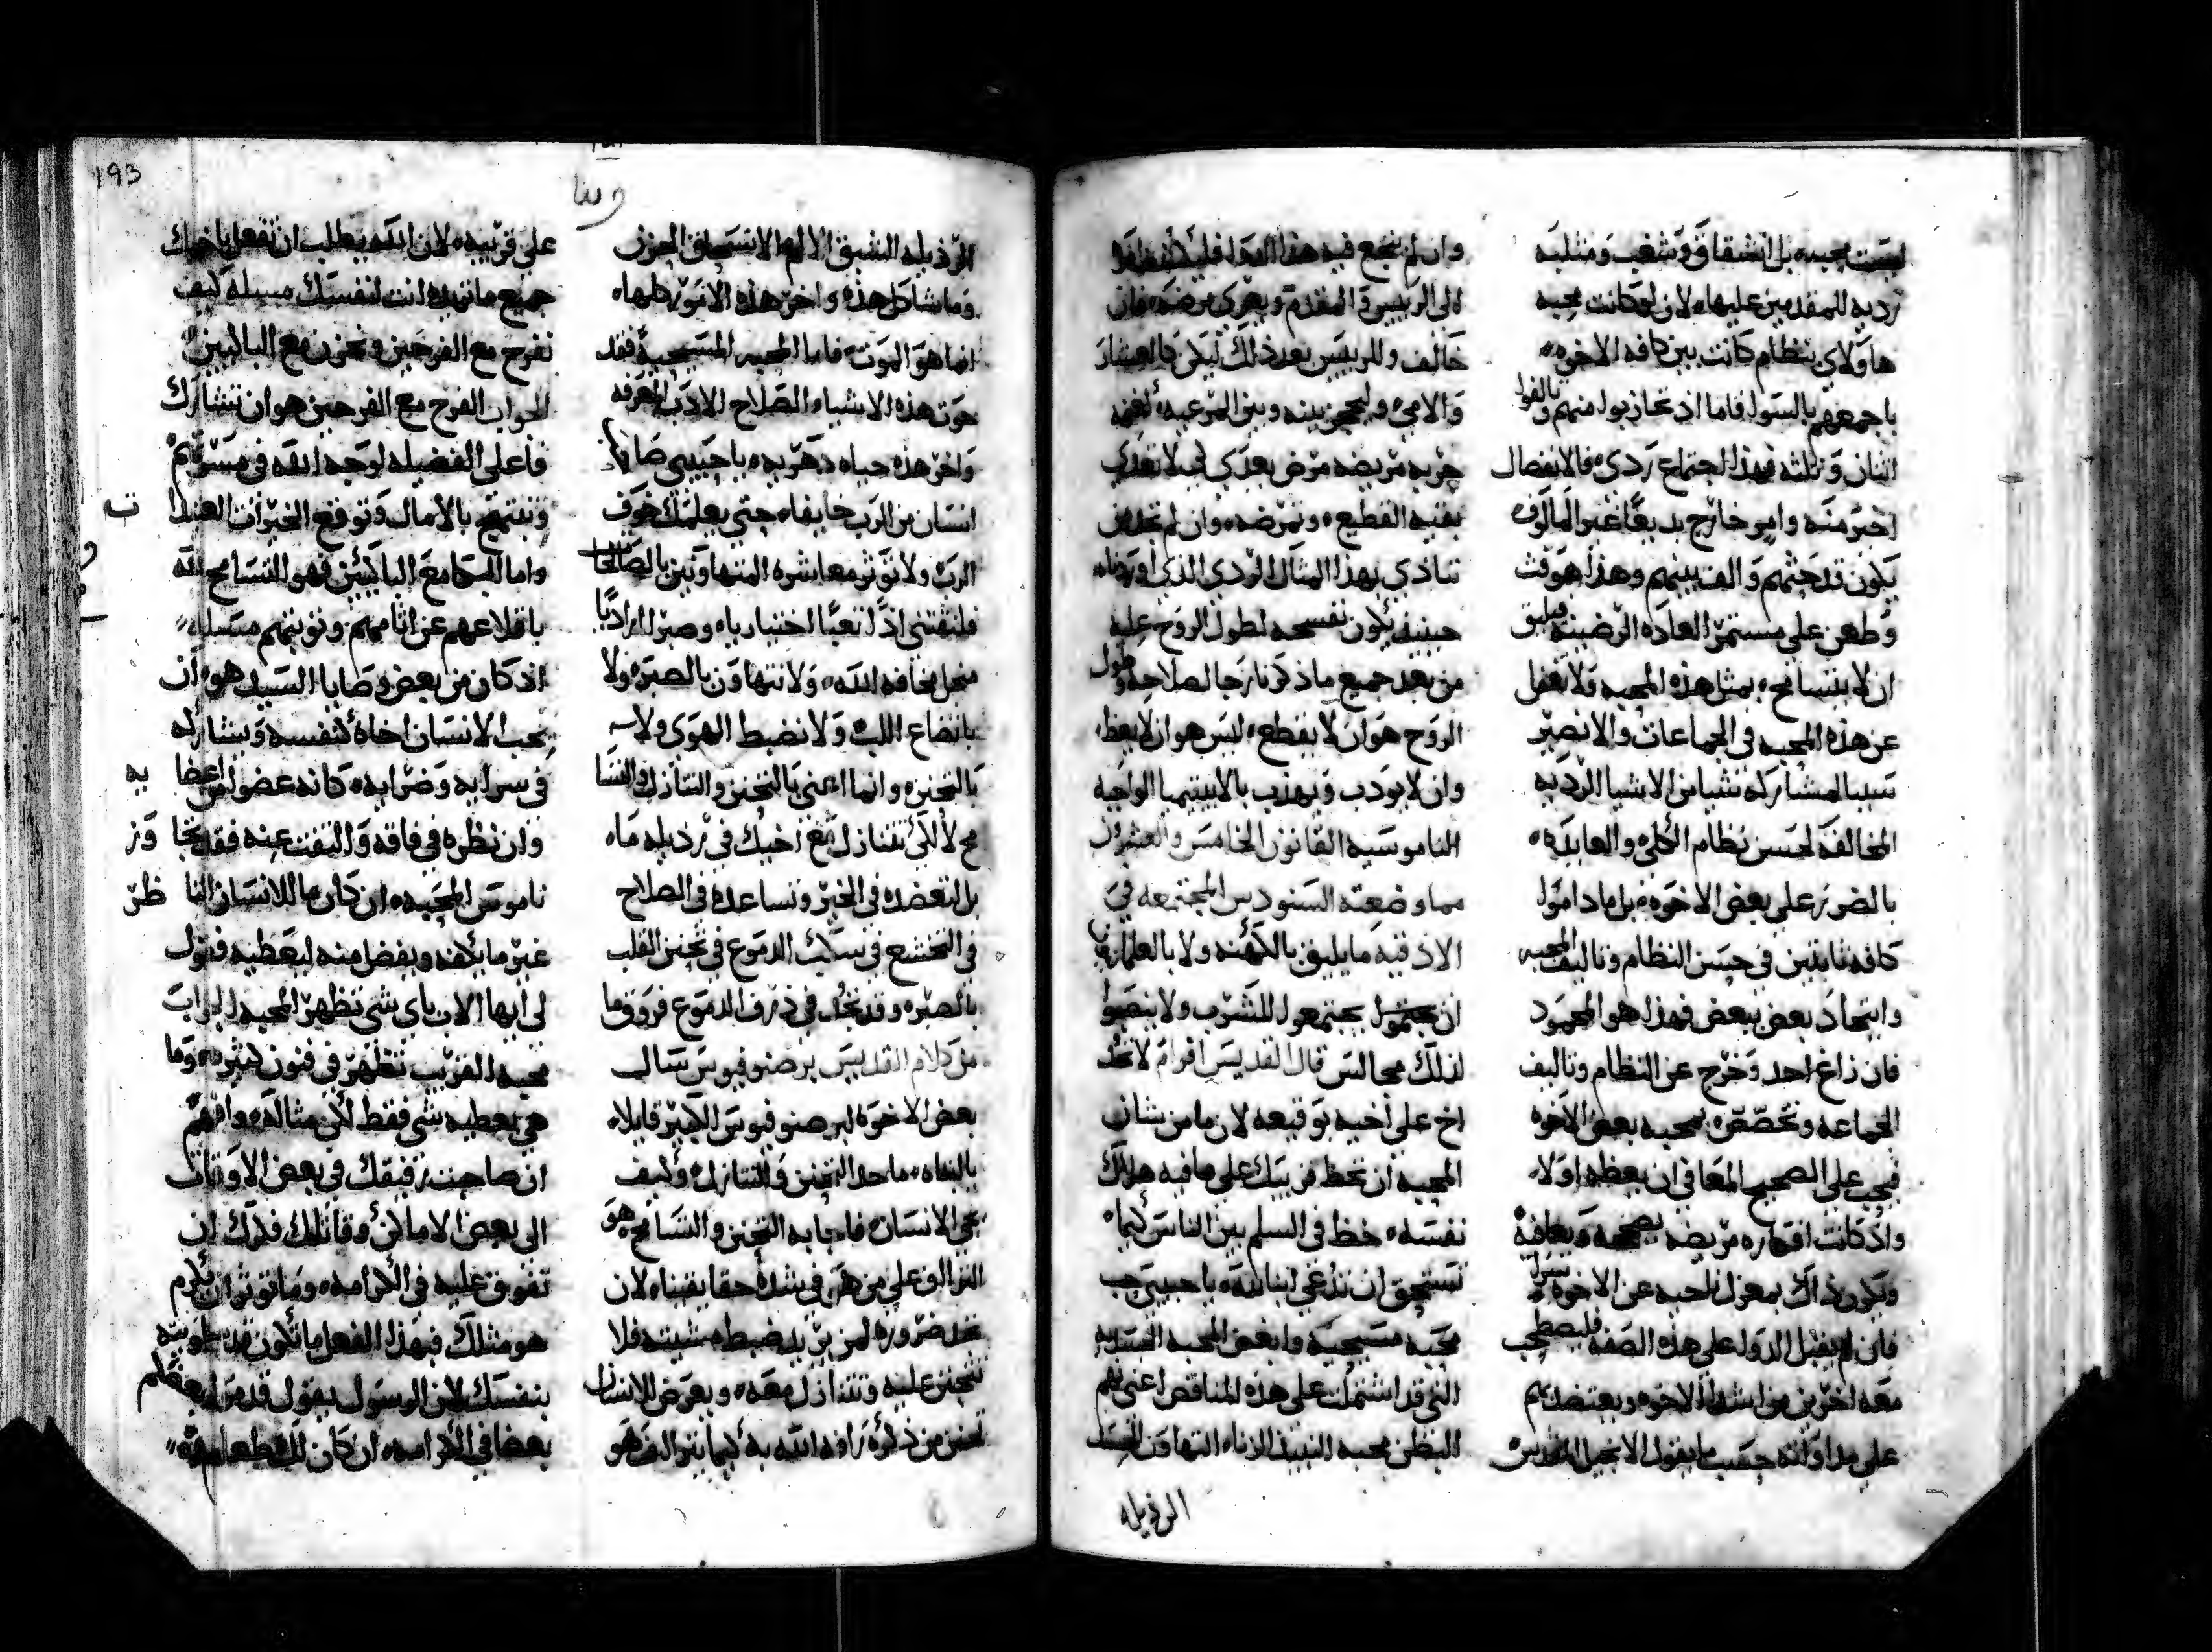 ليست محبه بل انشقاق وشغب ومثلبه
رديه للمقدمين عليها لان لو كانت محبه
هاولاي بنظام كانت بين كافه الاخوه
باجمعهم بالسوا فاما اذ تحازبوا منهم وتالفوا
اثنان وثلثه فهذا اجتماع ردي فالانفصال
اخير منه وامر خارج بديعًا غير المالوف
يكون قد جثهم والف بينهم وهذا هو
وطعن على مستمر العاده الرضيه فيليق
ان لا يتسامح بمثل هذه المحبه ولا تغفل
عن هذه المحبه في الجماعات والا نصير
سببا لمشاركه شيا من الاشيا الرديه
المخالفه لحسن نظام الكل والعايده
بالضرر على بعض الاخوه بل ما داموا
كافه ثابتين في حسن النظام وتاليف المحبه
واتحاد بعض ببعض فهذا هو المحمود
فان زاغ احد وخرج عن النظام وتاليف
الجماعه وتخصص بمحبه بعض الاخوه
فيجب على الصحيح المعافى ان يعظه اولا
واذ كانت افكاره مريضه يصححه ويعافيه
ويكون ذاك بمعزل ناحيه عن الاخوه سرا
فان لم يقبل الدوا على هذه الصفه فليصطحب
معه اخرين من اشدا الاخوه ويعتضد بهم
على مداواته حسب ما يقول الانجيل المقدس
وان لم ينجع فيه هذا الدوا فليكشف امره
الى الرييس والمقدم ويعرى مرضه فان
خالف وللرييس بعد ذلك ليكن كالعشار
والامي وليحجز بينه وبين المرعيه
جربه مريضه مرض يعدي ليلا تعدي
بقيه القطيع وتمرضه وان لم تمرض
تتاذي بهذا المثال الردي الذي اوردناه
حينيذ يكون نفسحه لطول الروح عليه
من بعد جميع ما ذكرنا رجا لصلاحه وطول
الروح هو ان لا يقطع ليس هو ان لا يعظ
وان لا يودب ويهذب بالابيتيميا الواجبه
الناموسيه القانون الخامس والعشرون
مما وضعته السنودس المجتمعه في
الاذقيه ما يليق بالكهنه ولا بالعلمانيين
ان يجتمعوا للشرب ولا ينصبوا
لذلك مجالس قال القديس افرام لا تحد
اخ على اخيه بوقيعه لان ما من شان
المحبه ان تحظ قريبك على ما فيه هلاك
نفسه حظ في السلم بين الناس كيما
تستحق ان تدعى ابنا لله يا حبيبي حب
محبه مسيحيه وابغض المحبه الجسدانيه
التي قد اشتملت على هذه المناقص اعني نهم
البطن محبه النبيذ الزناه التهاون الحسد
الرذيله
193
وبنا
الرذيله الشبق الالم الاستحقاق الحزن
وما شاكل هذه واخر هذه الامور كلها
انما هو الموت فاما المحبه المسيحيه فقد
حوت هذه الاشياء الصلاح الادب المعرفه
واخر هذه حياه دهريه يا حبيبي صادق
انسان من الرب خايفاه حتى يعلمك خوف
الرب ولا توثر معاشره المتهاونين بالصالحات
فلتقتني اذًا تعبًا اختياريا وصبرًا اراديًا
من اجل مخافه الله ولا تتهاون بالصبر ولا
باتضاع اللب ولا تضبط الهوى ولا
بالتحنن وانما اعني بالتحنن والتنازل والتسا
مح لا لكي تتنازل مع اخيك في رذيله ما
بل لتعضده في الخير وتساعده في الصلاح
في التخشع في سكيب الدموع في تحنن القلب
بالصبر وقد تجد في ذرف الدموع فروق ما
من كلام القديس برصنوفيوس سال
بعض الاخوه لبرصنوفيوس الكبير قايلا
يا اباه ما حد التحنن والتنازل وكيف
يجي الانسان فاجابه التحنن والتسامح هو
التراوف على من هو في شده حقا يقيناه لان
تجد ضروره لمن يريد ضبط مشيته فلا
تتحنن عليه وتتنازل معه ويعرض للانسان
تحنن من ذكره رافه الله به كيما يتراف هو
على قريبه لان الله يطلب ان تفعل باخيك
جميع ما تريده انت لنفسك مسله كيف
نفرح مع الفرحين ونحزن مع الباكيين
الجواب الفرح مع الفرحين هو ان تتشارك
فاعلي الفضيله لوجه الله في مسرتهم
وتبتهج بالامال وتوقع الخيرات العتيدا ت
واما البكا مع الباكيين فهو التسامح لله
باقلاعهم عن اثامهم وتوبتهم مسله
اذ كان من بعض وصايا السيد هو ان
يحب الانسان اخاه كنفسه ويتشاركه
في سرايه وضرايه كانه عضوا من اعضا يه
وان نظره في فاقه والتفت عنه فقد تجا وز
ناموس المحبه وان كان ما للانسان النا ظر
غير ما يكفه ويفضل منه ليعطيه فقول
لي ايها الاب باي شي تظهر المحبه الجواب
محبه القريب تظهر في فنون كثيره وما
هي بعطيه شي فقط لكن مثال ذلك وافهم
ان صاحبت رفيقك في بعض الاوقات
الى بعض الاماكن وقاتلك فكرك ان
تفوق عليه في الكرامه وما توثر ان يكرم
هو مثلك فبهذا الفعل ما تكون قد ساويته
بنفسك لان الرسول يقول قدموا بعضكم
بعضا في الكرامه وان كان لك طعام